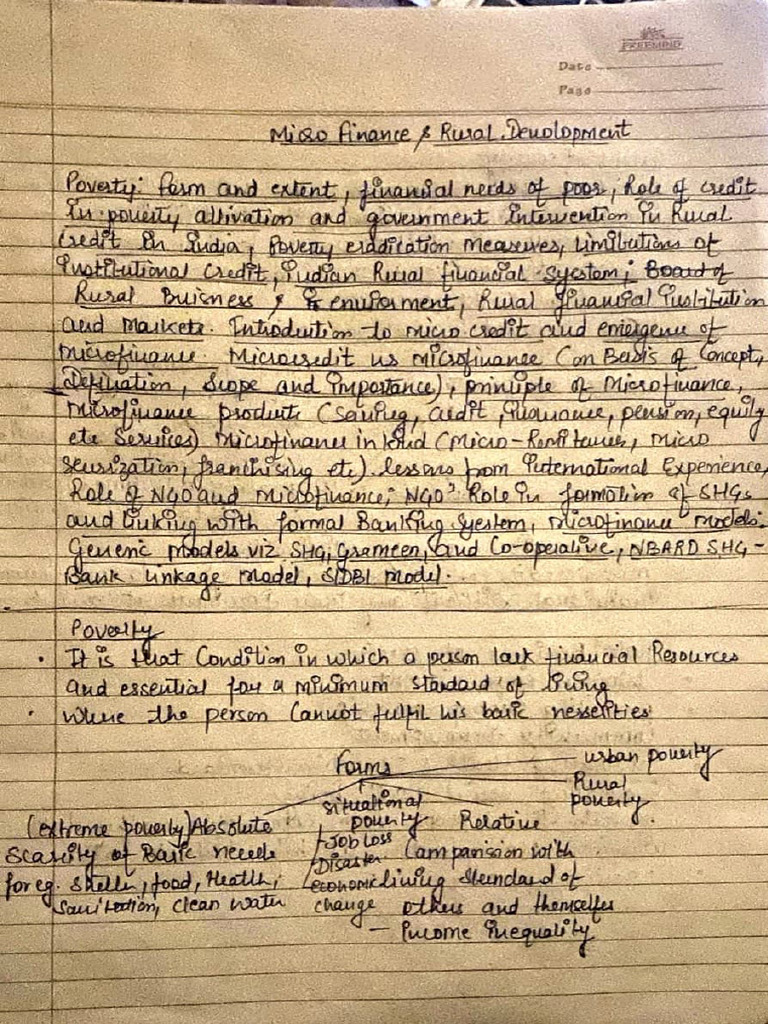 FREEMIND
Date
Page
Micro finance & Rural Development
Poverty: form and extent, financial needs of poor, Role of credit
in poverty allivation and government intervention in Rural
credit in India, Poverty eradication measures, limitations of
institutional credit, indian Rural financial system; Board of
Rural Buisness & enviorment, Rural financial institution
and markets. Introdution to micro credit and emergence of
microfinance. Microcredit vs microfinance (on Basis of concept,
Defination, Scope and importance), principle of Microfinance,
Microfinance products (saving, credit, insurance, pension, equity
etc services) Microfinance in kind (Micro-Remittences, micro
securization, franchising etc). lessons from International Experience,
Role of NGO and microfinance; NGO' Role in formation of SHGs
and linking with formal Banking system, microfinance models:
Generic models viz SHG, Grameen, and Co-operative, NBARD SHG-
Bank linkage model, SIDBI model.
Poverty
• It is that Condition in which a person lack financial Resources
and essential for a minimum standard of living
• where the person Cannot fulfil his basic nessecities
Forms
urban poverty
Rural
poverty
situational
poverty
(extreme poverty) Absolute
Relative
Scarcity of Basic needs
Job loss
Disaster
Camparision with
for eg. shelter, food, Health,
economic
living standard of
sanitection, clean water
change
others and themselfes
- Income inequality